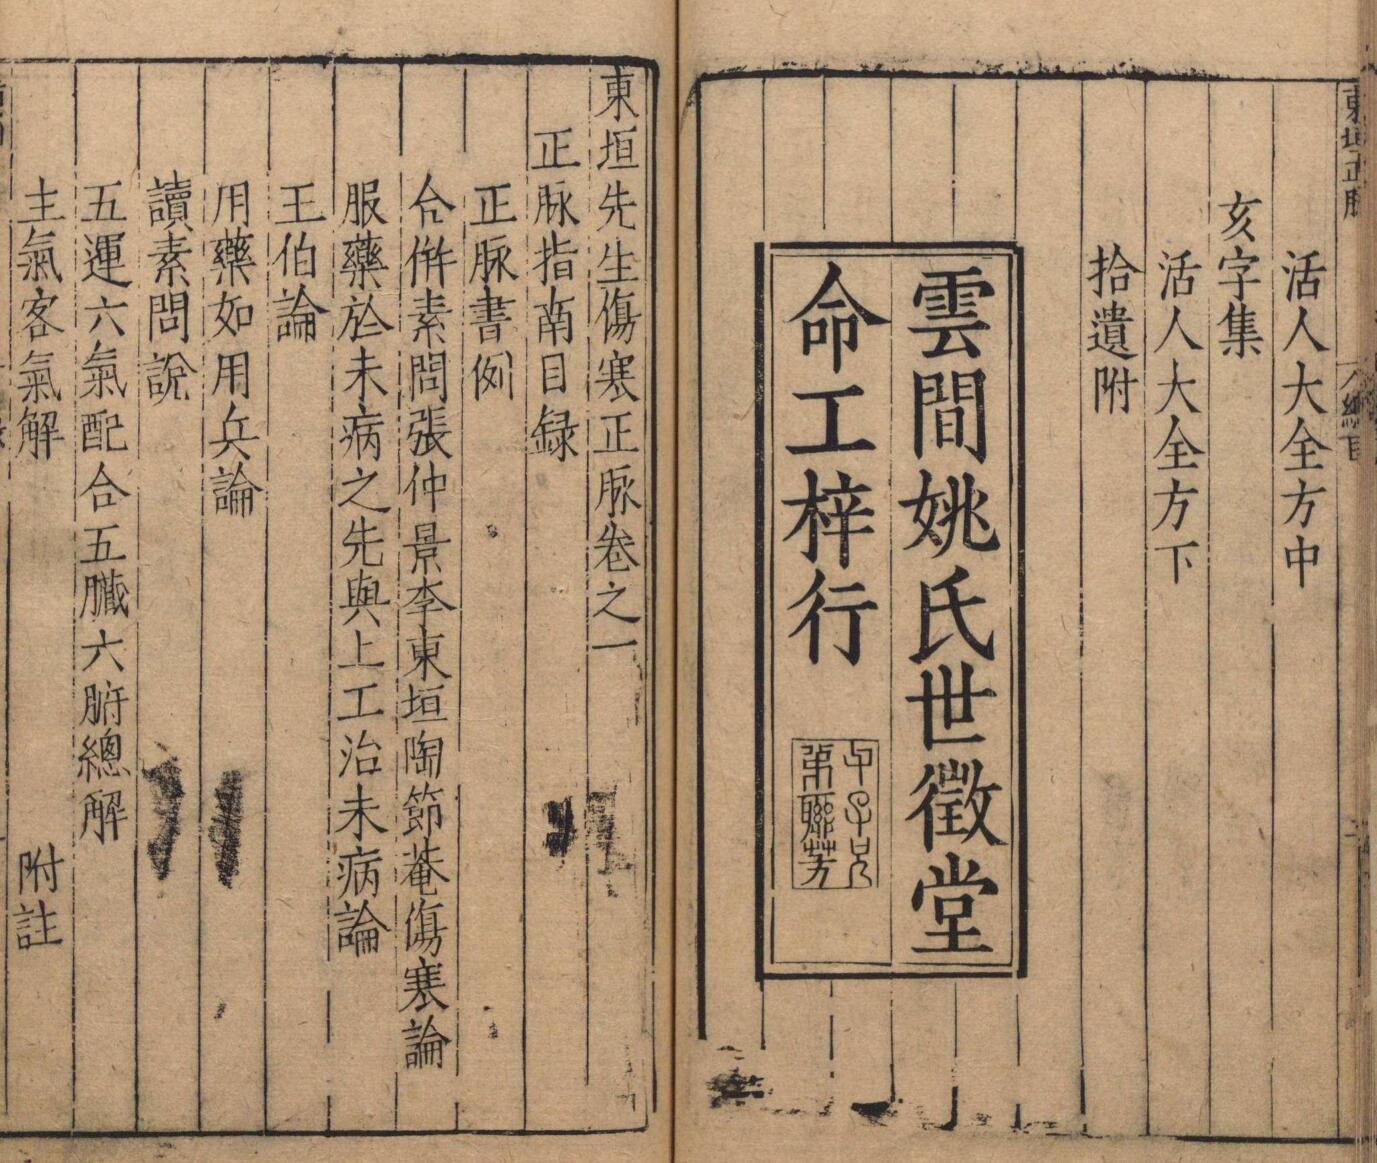 東垣正脉
活人大全方中
亥字集
活人大全方下
拾遺附
雲間姚氏世徵堂
命工梓行
東垣先生傷寒正脉卷之一
正脉指南目録
正脉書例
合併素問張仲景李東垣陶節菴傷寒論
服藥於未病之先與上工治未病論
王伯論
用藥如用兵論
讀素問說
五運六氣配合五臟六腑總解
主氣客氣解 附註